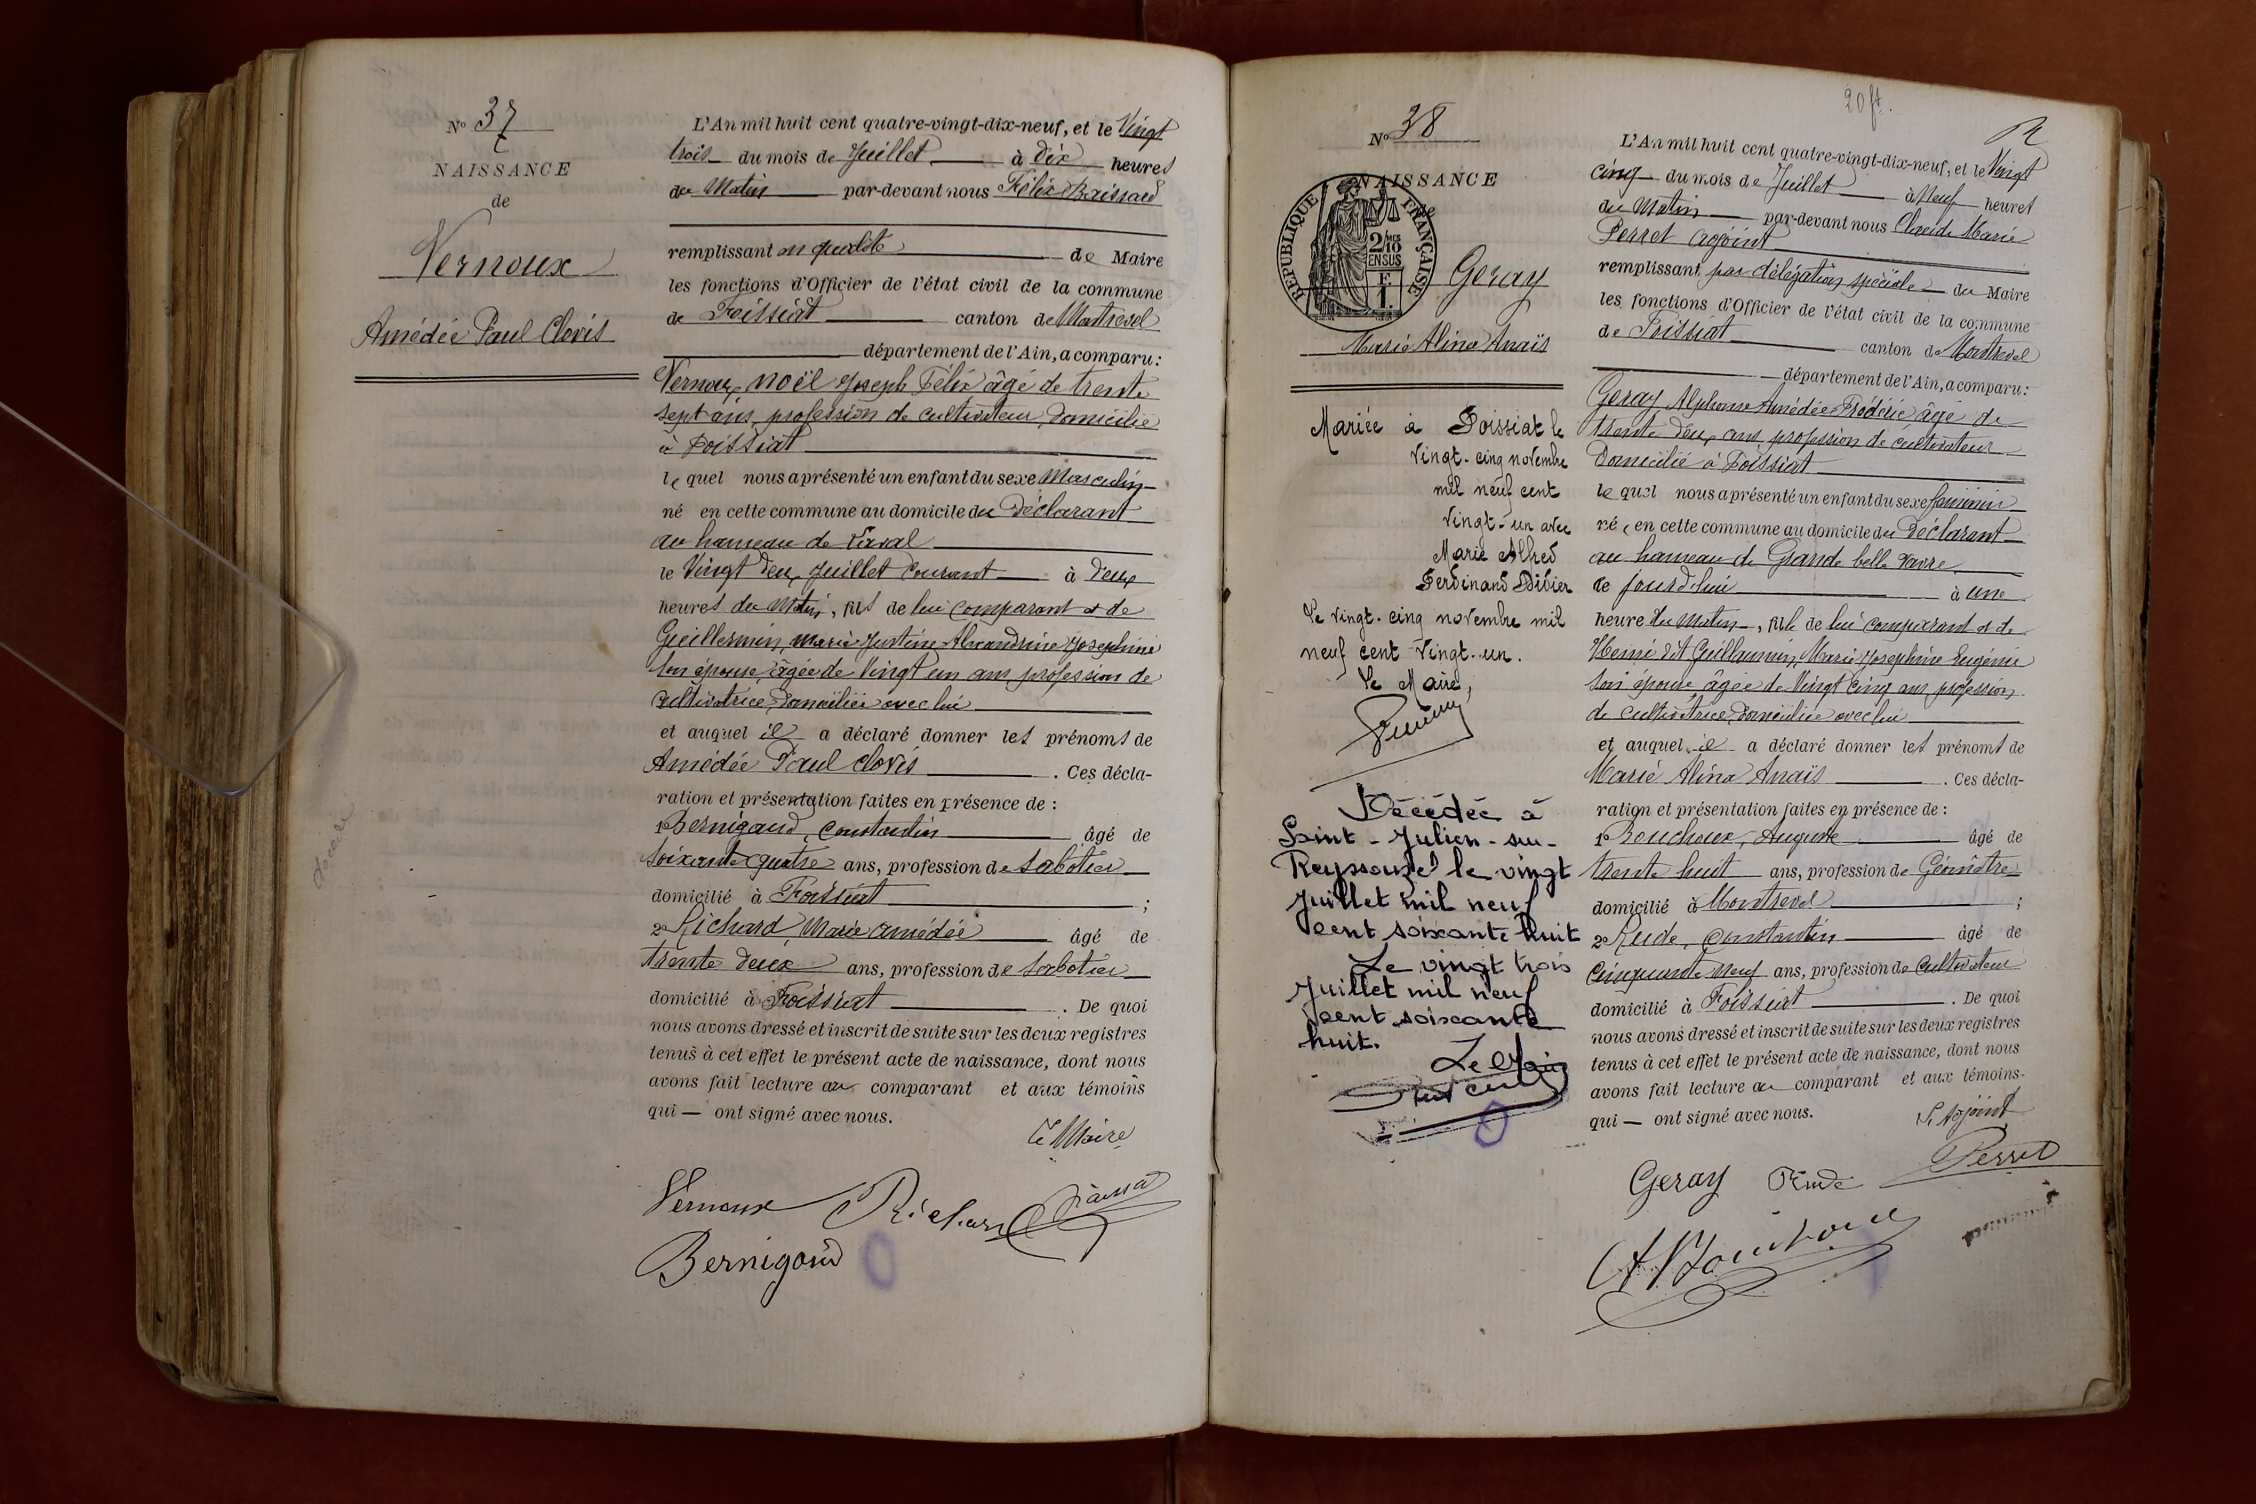 Nº 37
NAISSANCE
de
Vernoux
Amédée Paul Clovis
L'An mil huit cent quatre-vingt-dix-neuf, et le Vingt
trois du mois de Juillet à Dix heures
du Matin par-devant nous Félix
remplissant en qualité de Maire
les fonctions d'Officier de l'état civil de la commune
de Foissiat canton de Montrevel
département de l'Ain, a comparu :
Vernoux, Noël Joseph Félix âgé de trente
sept ans, profession de cultivateur, domicilié
à Foissiat
le quel nous a présenté un enfant du sexe Masculin
né en cette commune au domicile du Déclarant
au hameau de
le Vingt deux Juillet courant à deux
heures du Matin, fils de lui comparant et de
Guillermin, Marie Justine Alexandrine Josephine
son épouse, âgée de Vingt un ans, profession de
cultivatrice, domiciliée avec lui
et auquel il a déclaré donner les prénoms de
Amédée Paul Clovis . Ces décla-
ration et présentation faites en présence de :
1º Bernigaud, Constantin âgé de
soixante quatre ans, profession de sabotier
domicilié à Foissiat ;
2º Richard, Marie Amédée âgé de
trente deux ans, profession de sabotier
domicilié à Foissiat . De quoi
nous avons dressé et inscrit de suite sur les deux registres
tenus à cet effet le présent acte de naissance, dont nous
avons fait lecture au comparant et aux témoins
qui — ont signé avec nous.
Le Maire
Vernoux Richard
Bernigaud
20 ft.
Nº 38
NAISSANCE
de
RÉPUBLIQUE FRANÇAISE
2/10
EN SUS
F.
1.
Geray
Marie Alina Anaïs
Mariée à Foissiat le
vingt-cinq novembre
mil neuf cent
vingt-un avec
Marie Alfred
Ferdinand Didier
Le vingt-cinq novembre mil
neuf cent vingt-un.
Le Maire,
Décédée à
Saint-Julien-sur-
Reyssouze le vingt
Juillet mil neuf
cent soixante huit
Le vingt trois
Juillet mil neuf
cent soixante
huit.
Le Maire
L'An mil huit cent quatre-vingt-dix-neuf, et le Vingt
cinq du mois de Juillet à Neuf heures
du Matin par-devant nous Marie
Perret adjoint
remplissant par délégation spéciale du Maire
les fonctions d'Officier de l'état civil de la commune
de Foissiat canton de Montrevel
département de l'Ain, a comparu :
Geray, Alphonse Amédée Frédéric âgé de
trente deux ans, profession de cultivateur
domicilié à Foissiat
le quel nous a présenté un enfant du sexe féminin
née en cette commune au domicile du Déclarant
au hameau de Grande
le jourd'hui à une
heure du Matin, fille de lui comparant et de
dit Guillermin, Marie Josephine Eugénie
son épouse âgée de Vingt cinq ans, profession
de cultivatrice, domiciliée avec lui
et auquel il a déclaré donner les prénoms de
Marie Alina Anaïs . Ces décla-
ration et présentation faites en présence de :
1º Bouchoux, Auguste âgé de
trente huit ans, profession de Géomètre
domicilié à Montrevel ;
2º Rude, Constantin âgé de
cinquante neuf ans, profession de cultivateur
domicilié à Foissiat . De quoi
nous avons dressé et inscrit de suite sur les deux registres
tenus à cet effet le présent acte de naissance, dont nous
avons fait lecture au comparant et aux témoins
qui — ont signé avec nous.
L'Adjoint
Geray Rude Perret
A Bouchoux